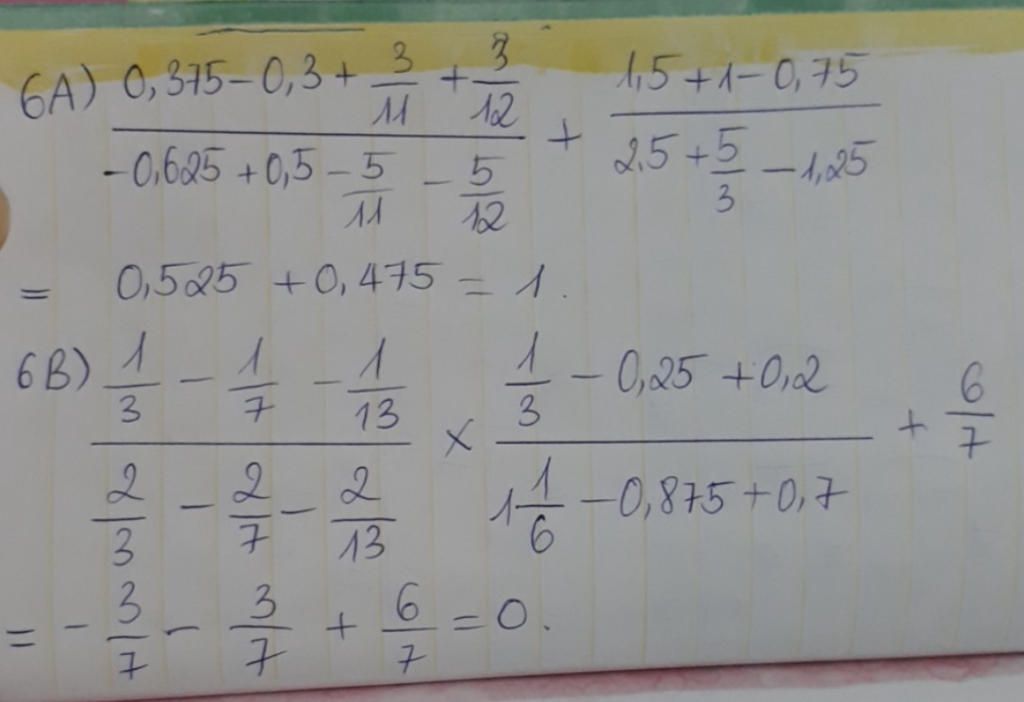 6A) \frac{0,375-0,3+\frac{3}{11}+\frac{3}{12}}{-0,625+0,5-\frac{5}{11}-\frac{5}{12}} + \frac{1,5+1-0,75}{2,5+\frac{5}{3}-1,25}
= 0,525 + 0,475 = 1.
6B) \frac{\frac{1}{3}-\frac{1}{7}-\frac{1}{13}}{\frac{2}{3}-\frac{2}{7}-\frac{2}{13}} × \frac{\frac{1}{3}-0,25+0,2}{1\frac{1}{6}-0,875+0,7} + \frac{6}{7}
= -\frac{3}{7} - \frac{3}{7} + \frac{6}{7} = 0.